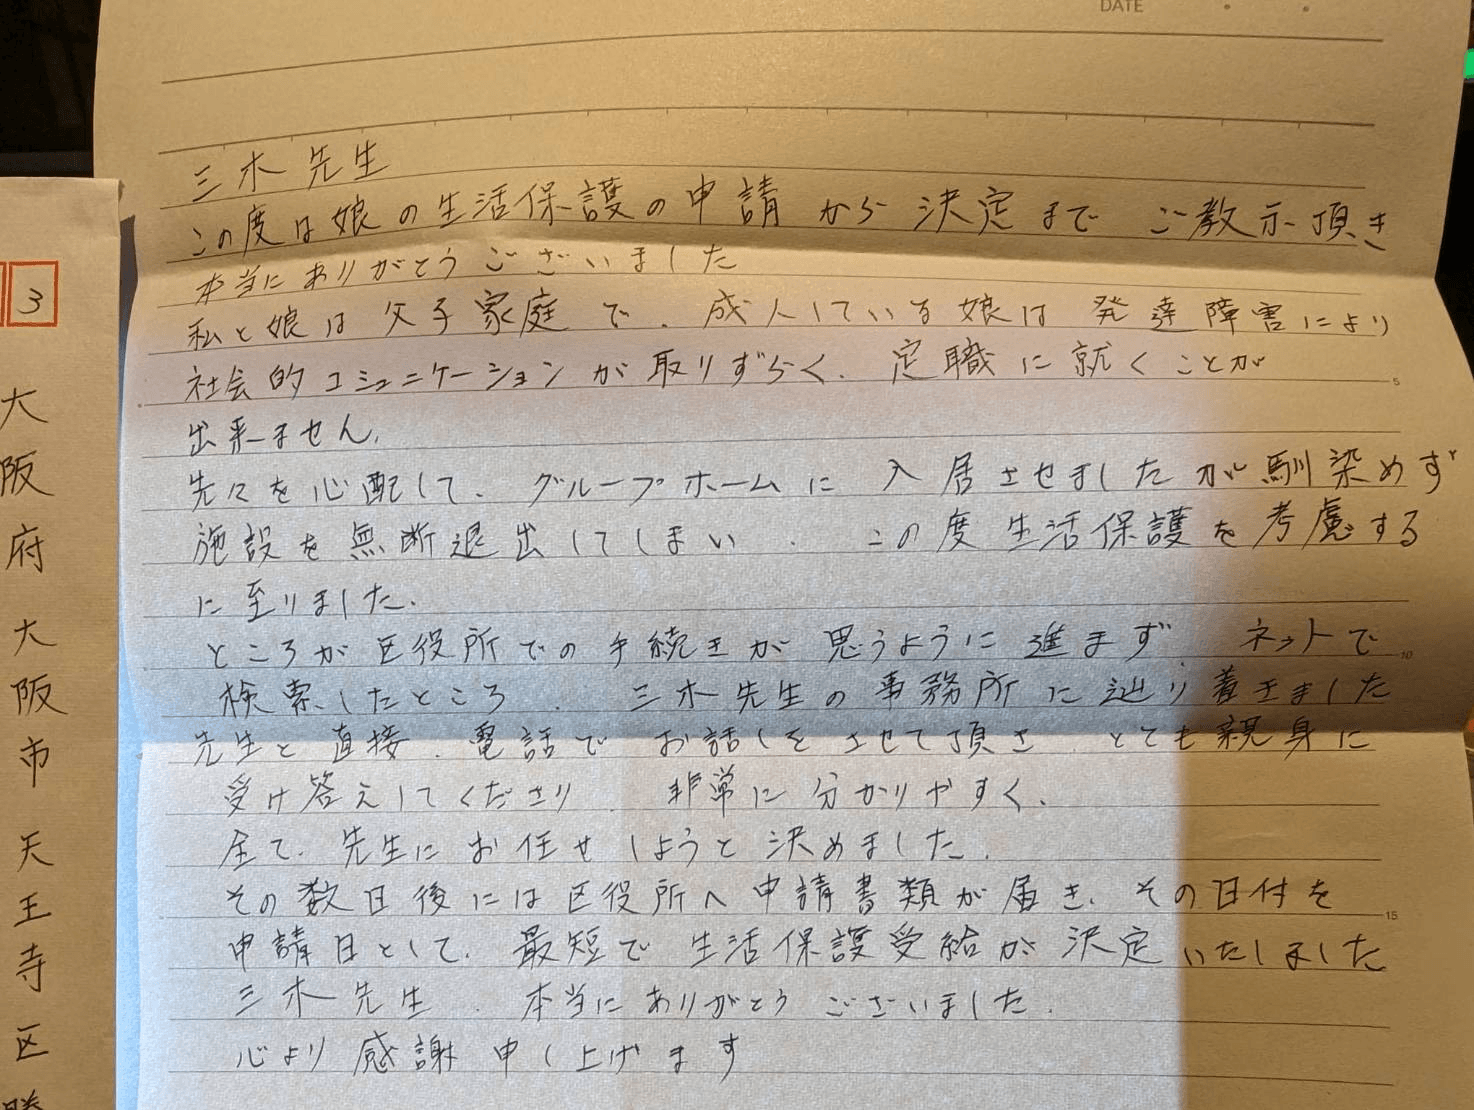 DATE
三木先生
この度は娘の生活保護の申請から決定までご教示頂き
本当にありがとうございました
私と娘は父子家庭で、成人している娘は発達障害により
社会的コミュニケーションが取りずらく、定職に就くことが
出来ません、
先々を心配して、グループホームに入居させましたが馴染めず
施設を無断退出してしまい、この度生活保護を考慮する
に至りました、
ところが区役所での手続きが思うように進まず、ネットで
検索したところ、三木先生の事務所に辿り着きました
先生と直接、電話でお話しをさせて頂き、とても親身に
受け答えしてくださり、非常に分かりやすく、
全て、先生にお任せしようと決めました、
その数日後には区役所へ申請書類が届き、その日付を
申請日として、最短で生活保護受給が決定いたしました
三木先生、本当にありがとうございました、
心より感謝申し上げます
5
10
15
3
大阪府大阪市天王寺区